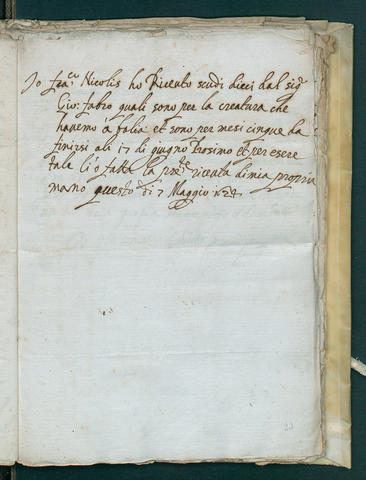 Io fran.co Nicolis ho Riceuto scudi dieci dal sig.r
Gio: fabro quali sono per la creatura che
havemo à balia et sono per mesi cinque da
finirsi ali 17 di giugno prosimo et per esere
tale li ò fatta la pre.te riceuta di mia propria
mano questo dì 7 Maggio